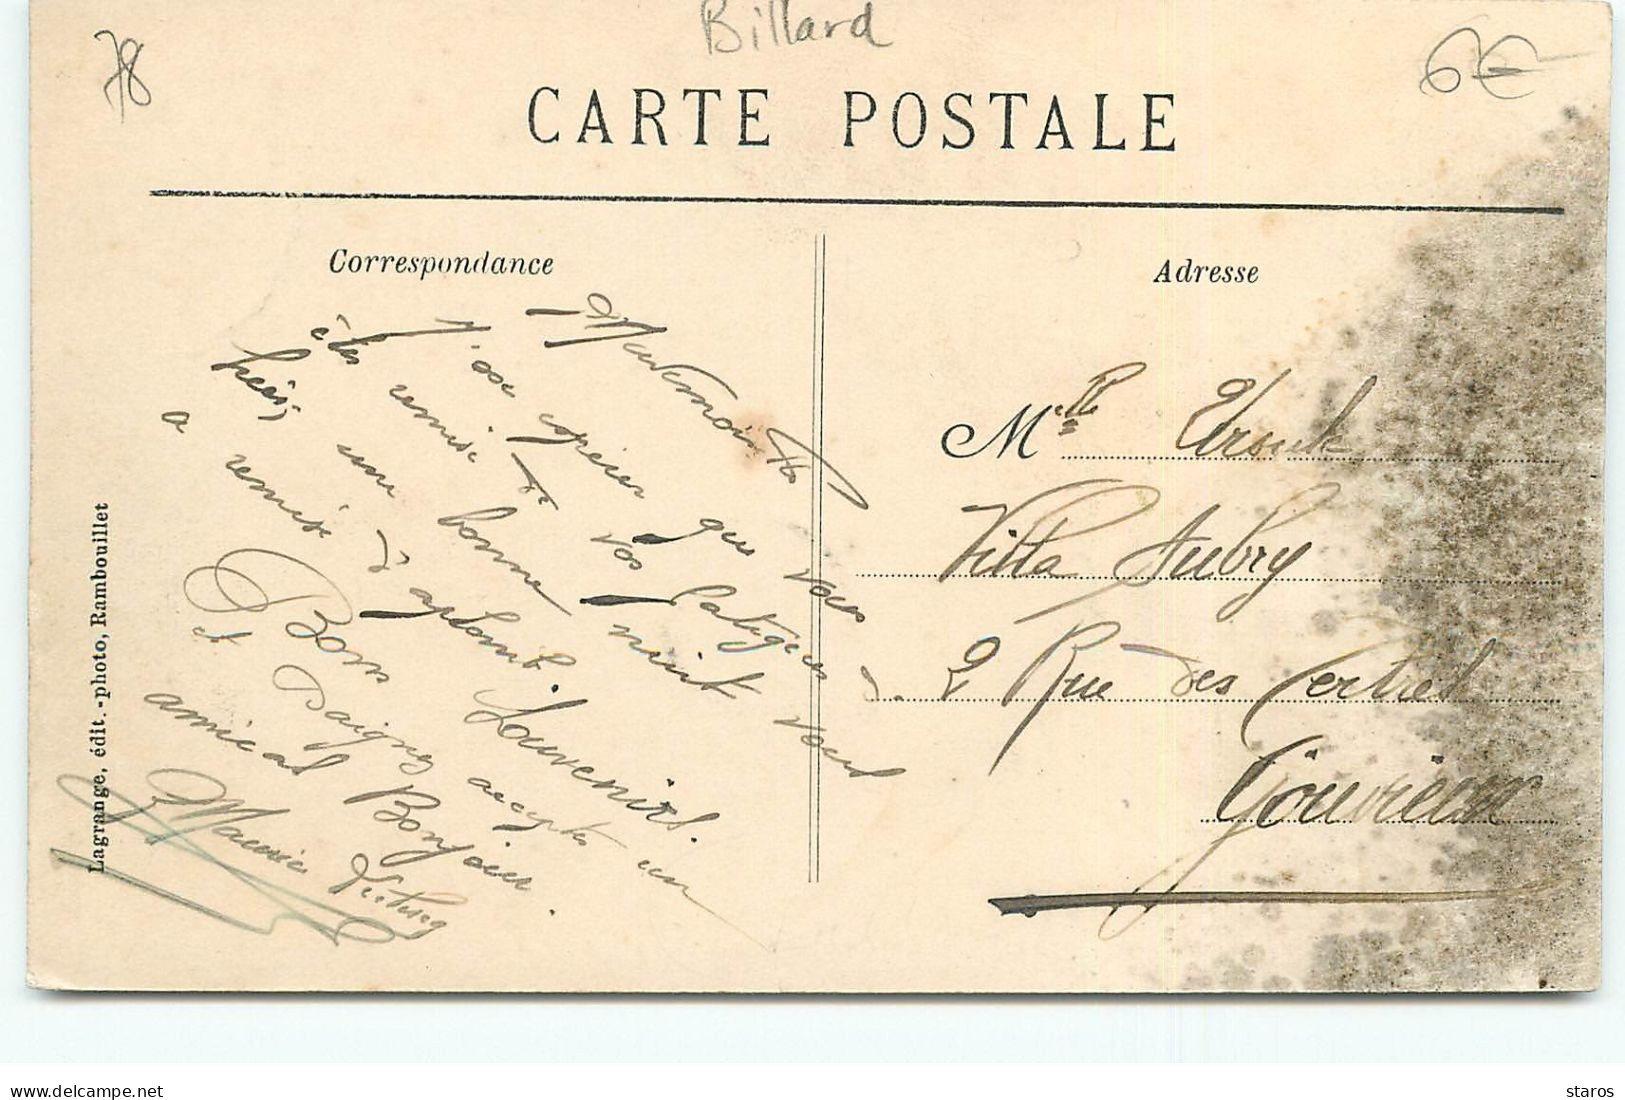 Billard
78
6€
CARTE POSTALE
Correspondance
Adresse
Mademoiselle
J'ose espérer que vous
êtes remise de vos fatigues d.
hier; une bonne nuit vous
a remise d'aplomb.
Bons Souvenirs.
et Daignez accepter un
amical Bonjour.
Maurice
Melle Ursule
Villa Aubry
2 Rue des Tertres
Gouvieux
Lagrange, édit.-photo, Rambouillet
www.delcampe.net
staros